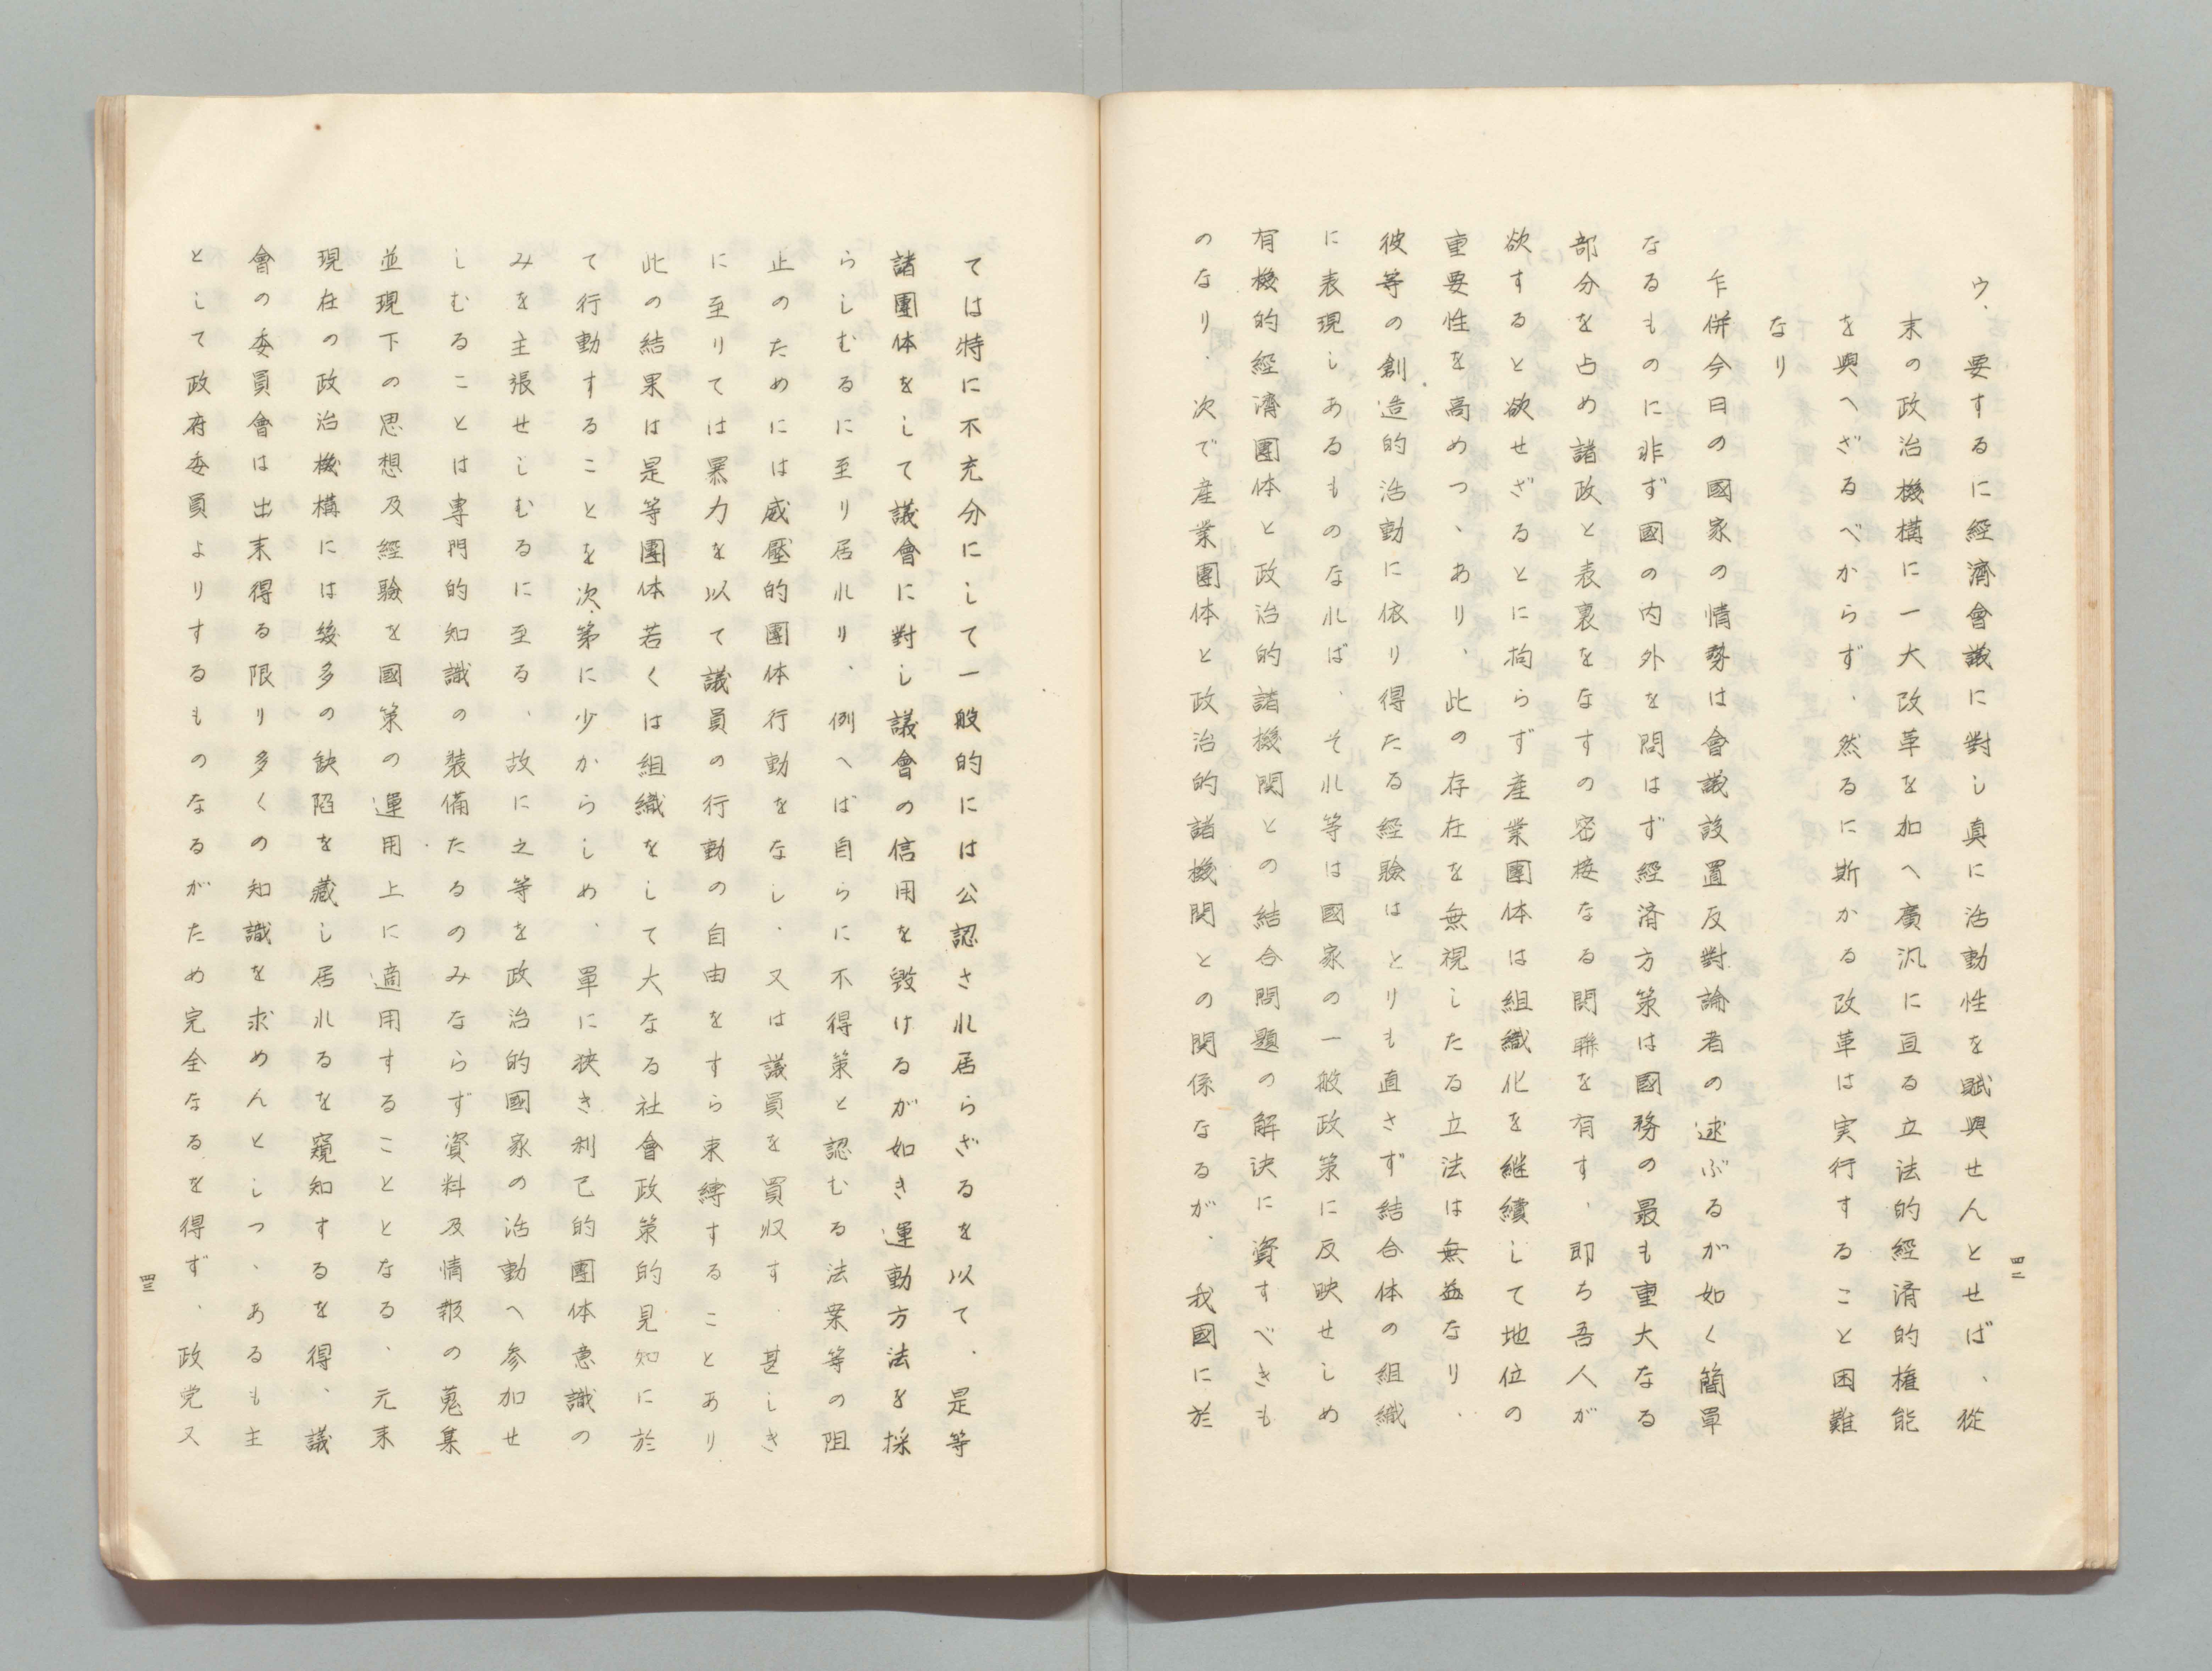 ウ．要するに経濟會議に對し真に活動性を賦與せんとせば、從
来の政治機構に一大改革を加へ廣汎に亘る立法的経済的権能
を與へざるべからず．然るに斯かる改革は実行すること困難
なり
乍併今日の國家の情勢は會議設置反對論者の逑ぶるが如く簡單
なるものに非ず國の内外を問はず経済方策は國務の最も重大なる
部分を占め諸政と表裏をなすの密接なる関聯を有す．即ち吾人が
欲すると欲せざるとに拘らず産業團体は組織化を継續して地位の
重要性を高めつ、あり、此の存在を無視したる立法は無益なり．
彼等の創造的活動に依り得たる経驗はとりも直さず結合体の組織
に表現しあるものなれば、それ等は國家の一般政策に反映せしめ
有機的経濟團体と政治的諸機関との結合問題の解決に資すべきも
のなり．次で産業團体と政治的諸機関との関係なるが．我國に於
四二
ては特に不充分にして一般的には公認され居らざるを以て．是等
諸團体をして議會に對し議會の信用を毀けるが如き運動方法を採
らしむるに至り居れり、例へば自らに不得策と認むる法案等の阻
止のためには威壓的團体行動をなし．又は議員を買収す．甚しき
に至りては暴力を以て議員の行動の自由をすら束縛することあり
此の結果は是等團体若くは組織をして大なる社會政策的見知に於
て行動することを次第に少からしめ、單に狭き利己的團体意識の
みを主張せしむるに至る、故に之等を政治的國家の活動へ参加せ
しむることは専門的知識の装備たるのみならず資料及情報の蒐集
並現下の思想及経驗を國策の運用上に適用することとなる、元来
現在の政治機構には幾多の缺陷を藏し居れるを窺知するを得、議
會の委員會は出来得る限り多くの知識を求めんとしつ、あるも主
として政府委員よりするものなるがため完全なるを得ず、政党又
四三